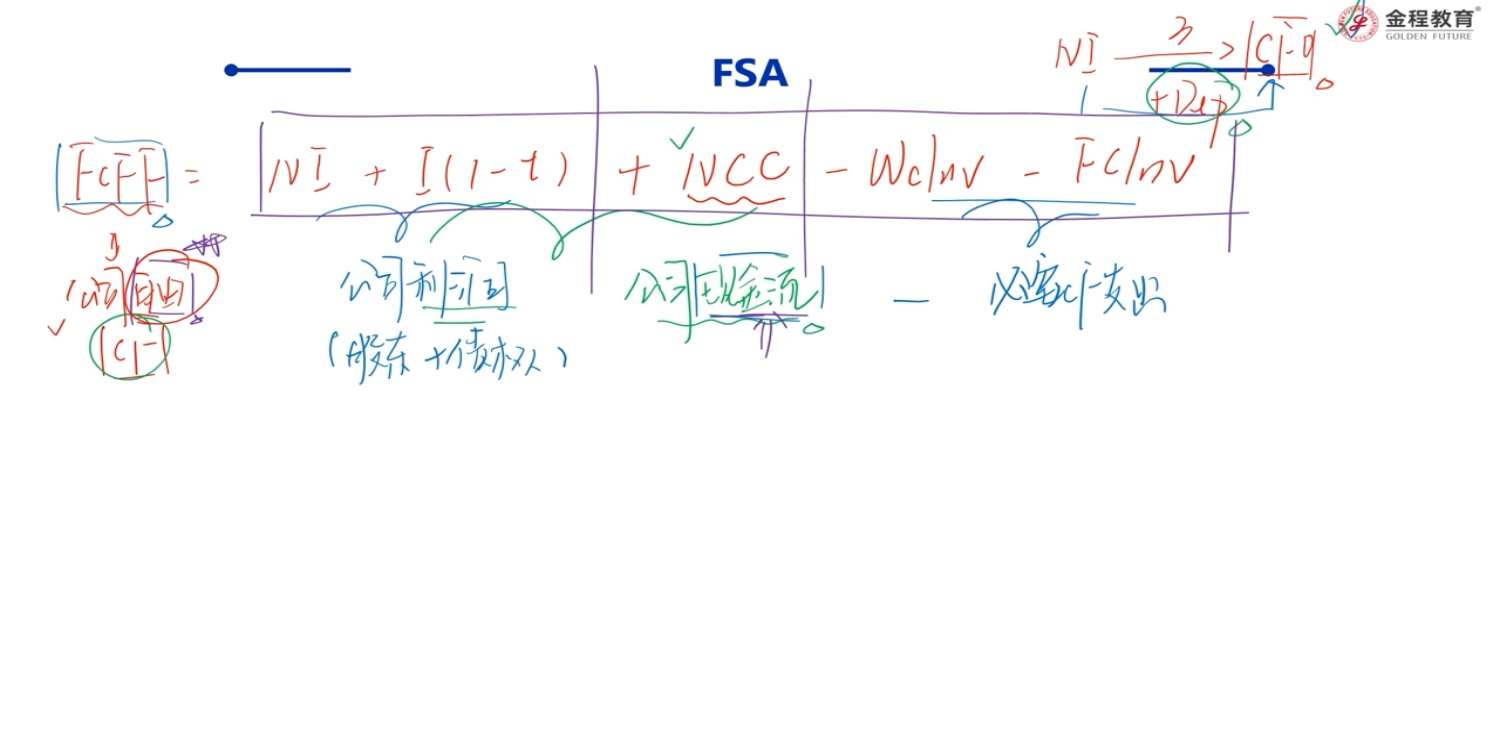 金程教育
GOLDEN FUTURE
FSA
NI → CFO
+Dep
FCFF = NI + I(1-t) + NCC - WcInv - FCInv
公司自由 公司利润 公司现金流 - 必需CF支出
CF (股东+债权人)